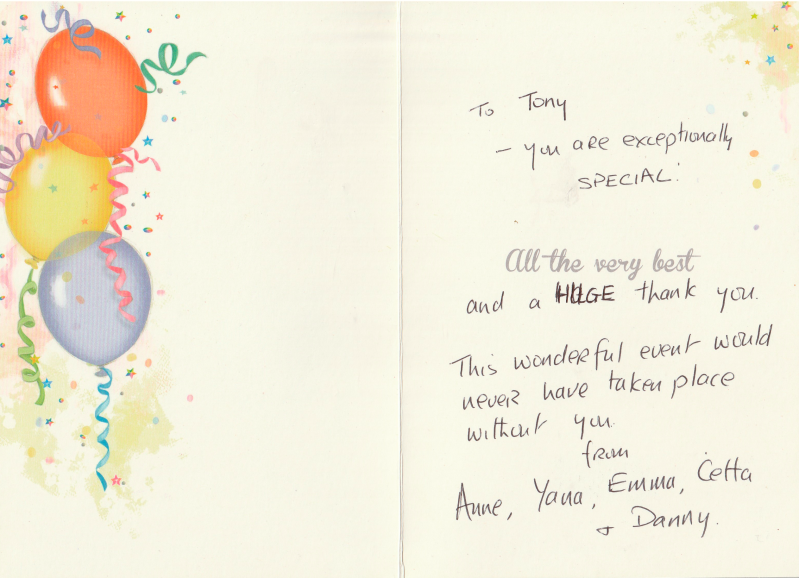 To Tony
- you are exceptionally
SPECIAL!
All the very best
and a HUGE thank you.
This wonderful event would
never have taken place
without you.
from
Anne, Yana, Emma, Cetta
+ Danny.